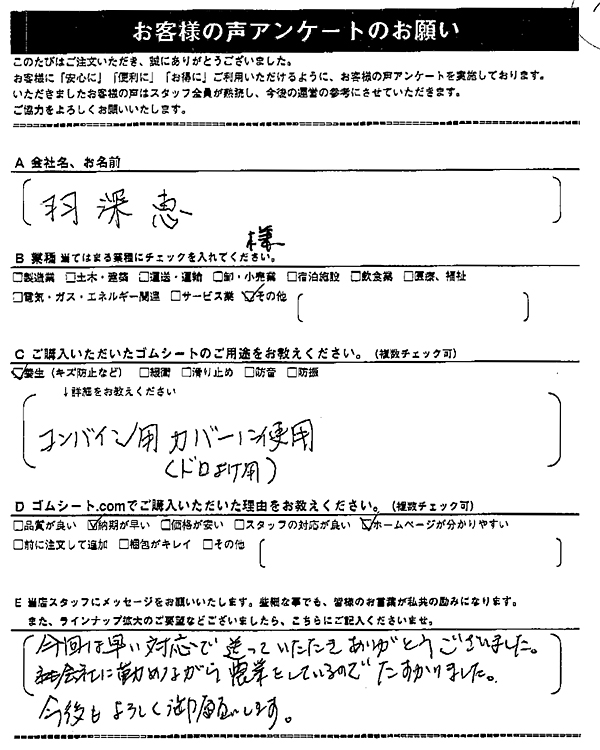 お客様の声アンケートのお願い
このたびはご注文いただき、誠にありがとうございました。
お客様に「安心に」「便利に」「お得に」ご利用いただけるように、お客様の声アンケートを実施しております。
いただきましたお客様の声はスタッフ全員が熟読し、今後の運営の参考にさせていただきます。
ご協力をよろしくお願いいたします。
A 会社名、お名前
羽深恵
様
B 業種 当てはまる業種にチェックを入れてください。
□製造業 □土木・建築 □運送・運輸 □卸・小売業 □宿泊施設 □飲食業 □医療、福祉
□電気・ガス・エネルギー関連 □サービス業 ☑その他
C ご購入いただいたゴムシートのご用途をお教えください。(複数チェック可)
☑養生(キズ防止など) □緩衝 □滑り止め □防音 □防振
↓詳細をお教えください
コンバイン用カバーに使用
(ドロよけ用)
D ゴムシート.comでご購入いただいた理由をお教えください。(複数チェック可)
□品質が良い ☑納期が早い □価格が安い □スタッフの対応が良い ☑ホームページが分かりやすい
□前に注文して追加 □梱包がキレイ □その他
E 当店スタッフにメッセージをお願いいたします。些細な事でも、皆様のお言葉が私共の励みになります。
また、ラインナップ拡大のご要望などございましたら、こちらにご記入くださいませ。
今回は早い対応で送っていただきありがとうございました。
会社に勤めながら農業をしているのでたすかりました。
今後もよろしく御願いします。